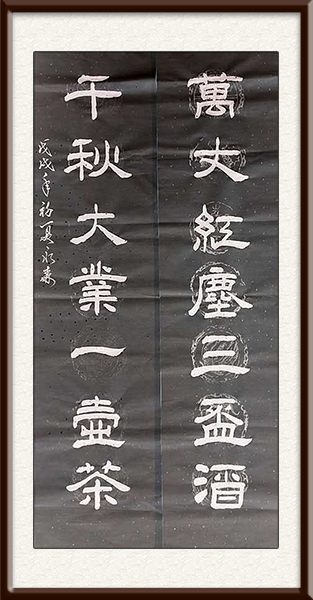 萬丈紅塵三盃酒
千秋大業一壺茶
戊戌年初夏永